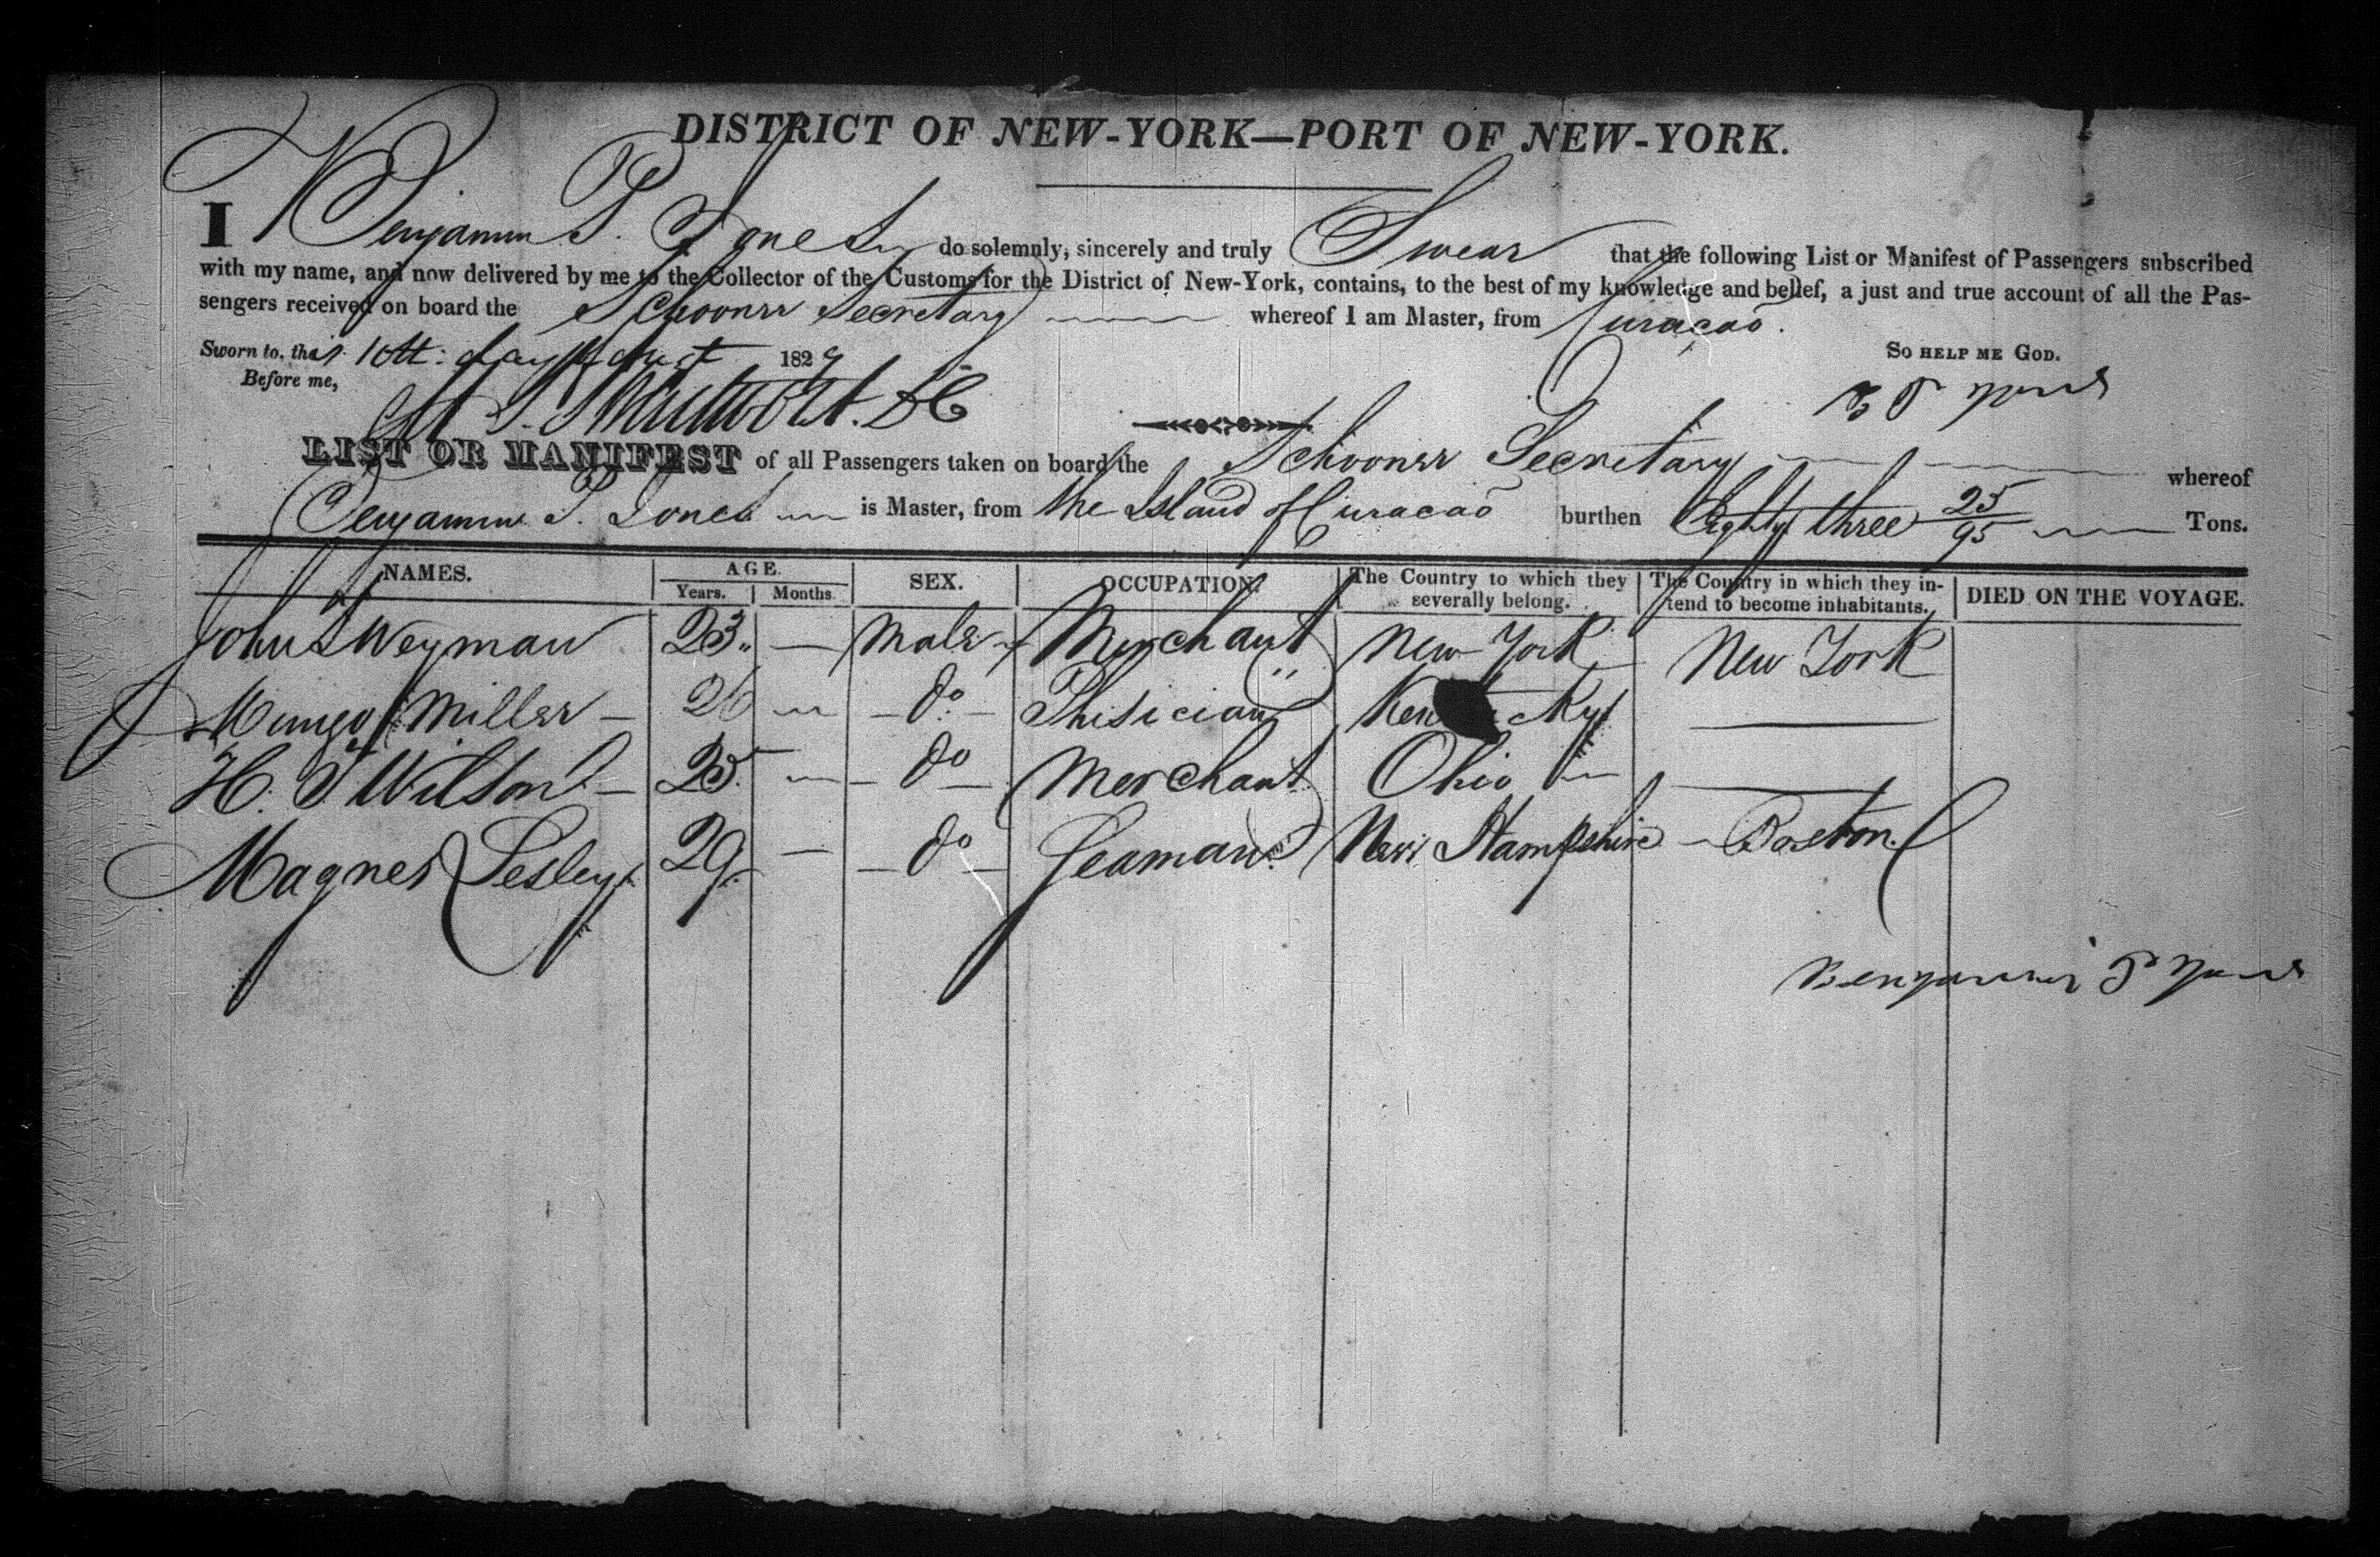 DISTRICT OF NEW-YORK—PORT OF NEW-YORK.
I Benjamin P. Jones do solemnly, sincerely and truly Swear that the following List or Manifest of Passengers subscribed
with my name, and now delivered by me to the Collector of the Customs for the District of New-York, contains, to the best of my knowledge and belief, a just and true account of all the Pas-
sengers received on board the Schooner Secretary whereof I am Master, from Curacao.
Sworn to, this day 1829 SO HELP ME GOD.
Before me, B P Jones
LIST OR MANIFEST of all Passengers taken on board the Schooner Secretary whereof
Benjamin P. Jones is Master, from the Island of Curacao burthen Eighty three 25/95 Tons.
NAMES. AGE. SEX. OCCUPATION. The Country to which they severally belong. The Country in which they in-tend to become inhabitants. DIED ON THE VOYAGE.
Years. Months.
John S Weyman 23 — Male Merchant New York New York
Mungo Miller — 26 — do — Phisician Kentucky —
H. S. Wilson — 25 — do — Merchant Ohio — —
Magnes Lesley 29 — do — Seaman New Hampshire — Boston
Benjamin P Jones